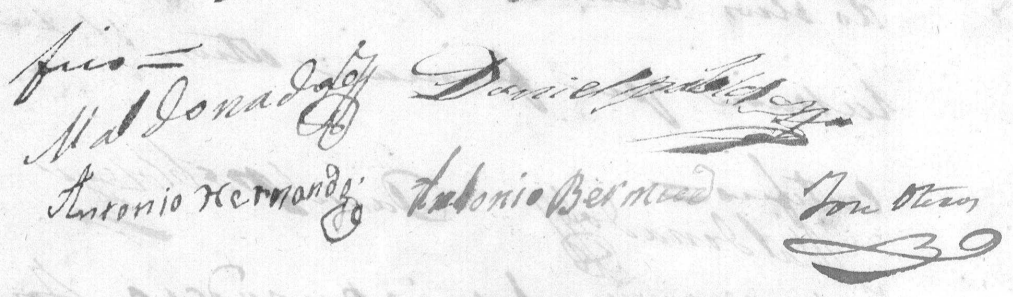 fico =
Maldonado Daniel
Antonio Hernando Antonio Bermud Jose Otero